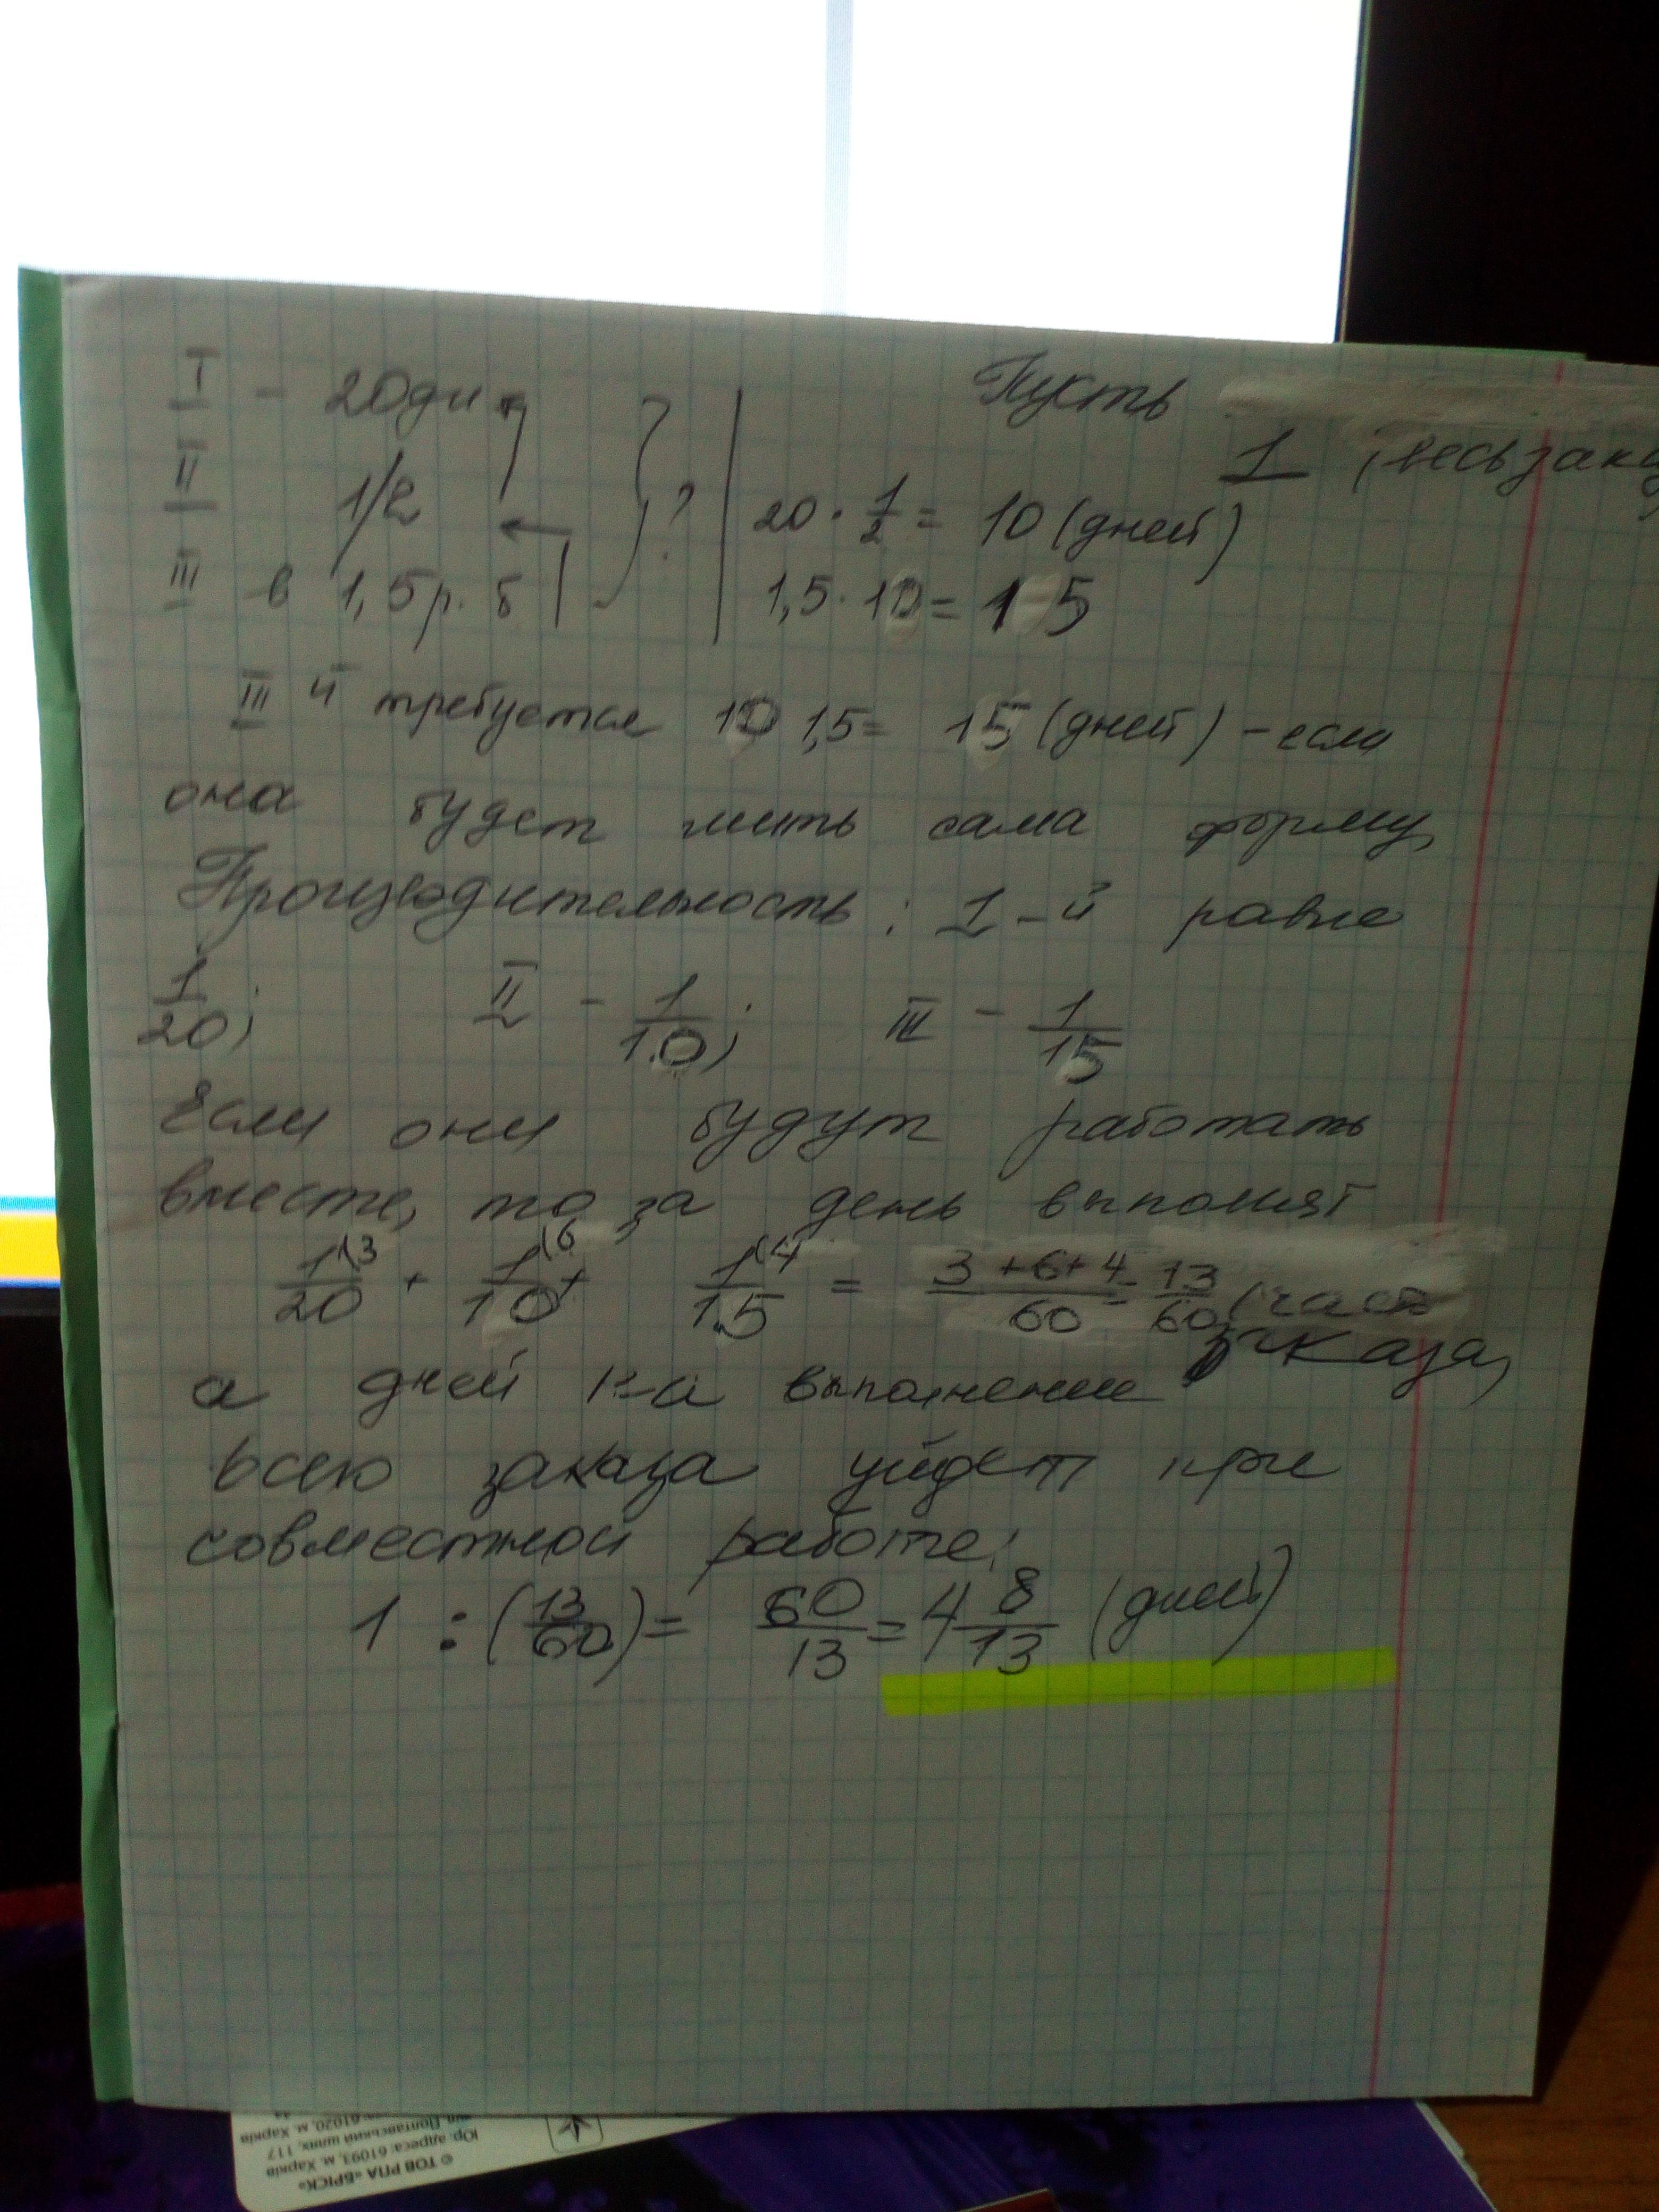 I - 20 дн
Пусть
1, весь зака
II 1/2 ? 20 · 1/2 = 10 (дней)
III в 1,5 р. б 1,5 · 10 = 15
III й требуется 10 1,5 = 15 (дней) - если
она будет шить сама форму,
Производительность: 1-й равна
1/20; II - 1/10; III - 1/15
Если они будут работать
вместе, то за день выпонят
1(3/20 + 1(6/10 + 1(4/15 = 3+6+4/60 = 13/60 (част
заказа,
а дней на выполнение
всего заказа уйдет при
совместной работе:
1 : (13/60) = 60/13 = 4 8/13 (дней)
© ТОВ РПА «БРІСК»
Юр. адреса: 61093, м. Харків
вул. Полтавський шлях, 117
61020, м. Харків